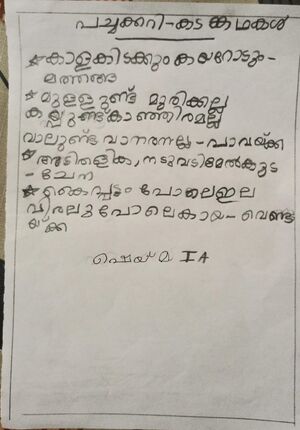 പച്ചക്കറി-കടങ്കഥകൾ
★ കാളകിടക്കും കയറോടും-
മത്തങ്ങ
★ മുള്ളുണ്ട് മുരിക്കല്ല
കയ്പ്പുണ്ട് കാഞ്ഞിരമല്ല
വാലുണ്ട് വാനരനല്ല - പാവയ്ക്ക
★ അടിമുളക, നടുവടിമേൽകുട
- ചേന
★ കൈപ്പടം പോലെഇല
വിരലുപോലെകായ- വെണ്ട
യ്ക്ക
ഷെയ്മ I A